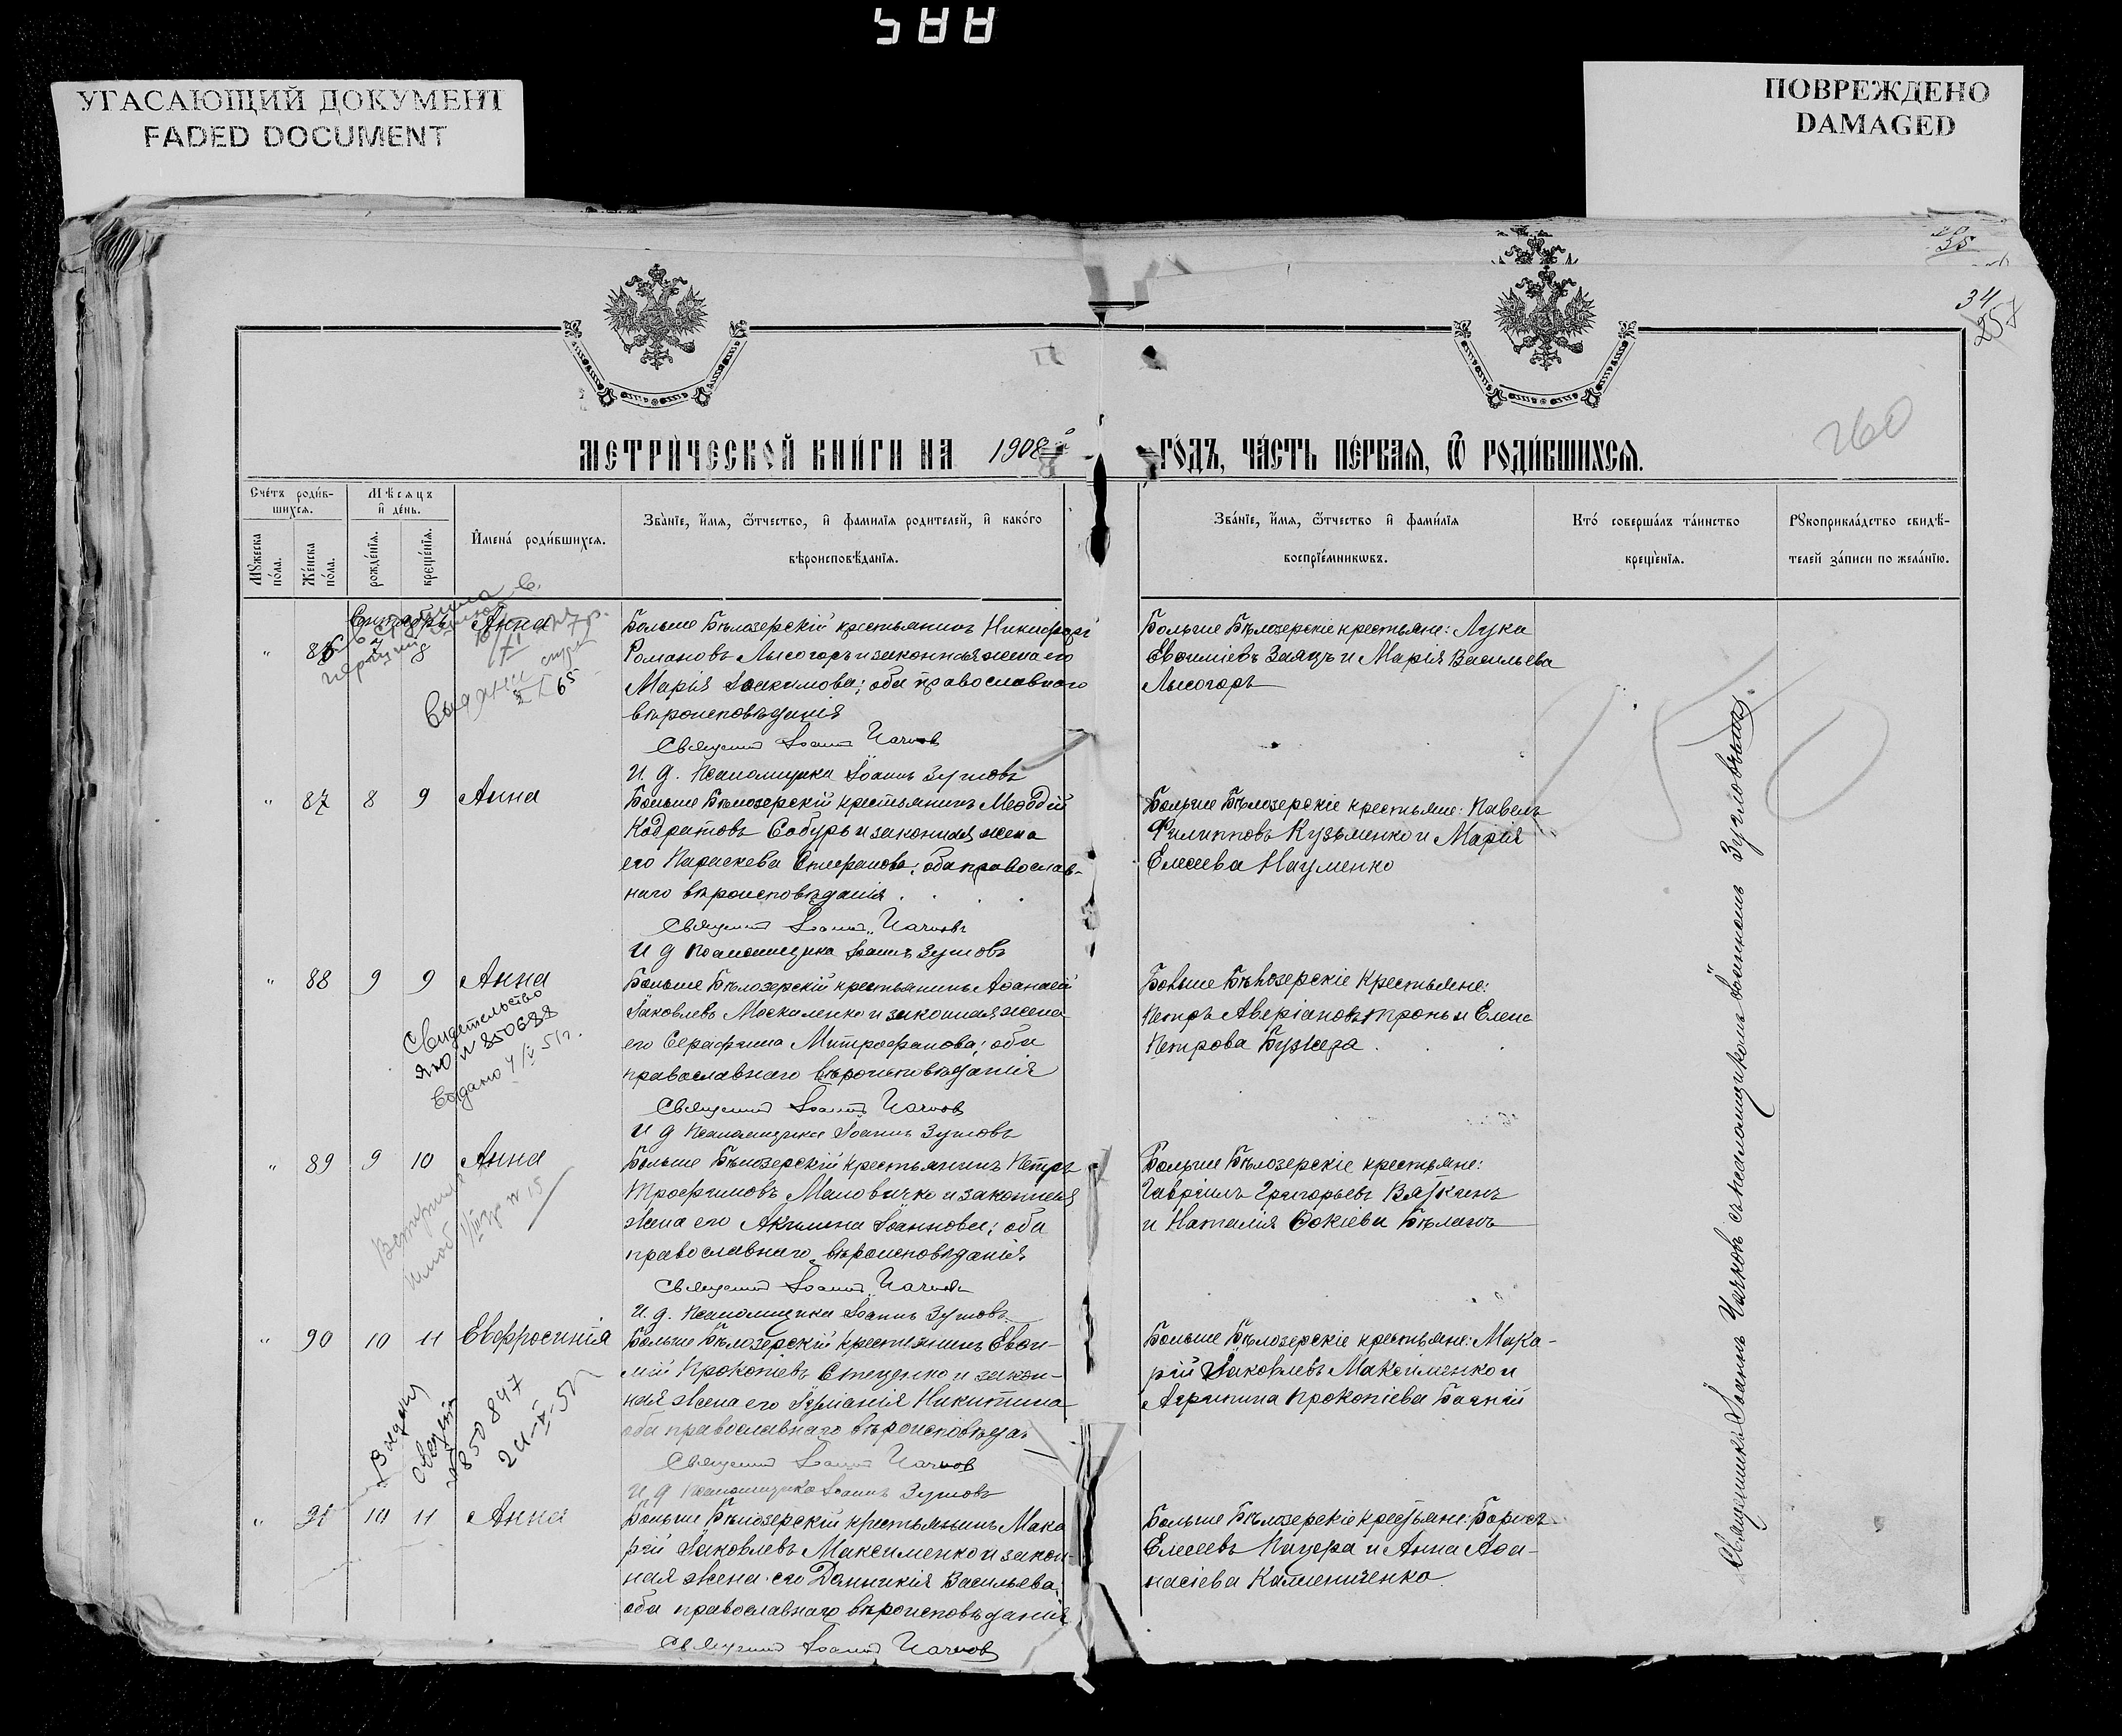 588
УГАСАЮЩИЙ ДОКУМЕНТ
FADED DOCUMENT
ПОВРЕЖДЕНО
DAMAGED
35
34
257
260
МЕТРИ́ЧЕСКОЙ КНИ́ГИ НА 1908
ГО́ДЪ, ЧА́СТЬ ПЕ́РВАЯ, Ѿ РОДИ́ВШИХСЯ.
Сче́тъ роди́вшихся.
Мѣсяцъ и҆ де́нь.
Мꙋжеска по́ла.
Же́нска по́ла.
рожде́нїя.
креще́нїя.
И҆мена̀ роди́вшихся.
Зва́нїе, и҆́мя, ѻ҆́тчество, и҆ фамилїя родителей, и҆ како́го
вѣроисповѣ́данїя.
Зва́нїе, и҆́мя, ѻ҆́тчество и҆ фами́лїя
воспрїе́мниковъ.
Кто̀ соверша́лъ та́инство
креще́нїя.
Рꙋкоприкла́дство свидѣ́-
телей за́писи по жела́нїю.
" 86 8 Анна
Больше Бѣлозерскій крестьянинъ Никифоръ
Романовъ Лысогоръ и законная жена его
Марія Іоакимова; оба православнаго
вѣроисповѣданія
Священникъ Іоаннъ Чачковъ
И. д. Псаломщика Іоаннъ Зугловъ
Больше Бѣлозерскіе крестьяне: Лука
Евфиміевъ Заяцъ и Марія Васильева
Лысогоръ
65
" 87 8 9 Анна
Больше Бѣлозерскій крестьянинъ Меѳодій
Кодратовъ Сабуръ и законная жена
его Параскева Стефанова; оба православ-
наго вѣроисповѣданія
Священникъ Іоаннъ Чачковъ
И д Псаломщика Іоаннъ Зугловъ
Больше Бѣлозерскіе крестьяне: Павелъ
Филипповъ Кузьменко и Марія
Елисеева Науменко
" 88 9 9 Анна
Больше Бѣлозерскій крестьянинъ Аѳанасій
Іаковлевъ Москаленко и законная жена
его Серафима Митрофанова; оба
православнаго вѣроисповѣданія
Священникъ Іоаннъ Чачковъ
И д Псаломщика Іоаннъ Зугловъ
Больше Бѣлозерскіе крестьяне:
Петръ Аверіановъ Тронь и Елена
Петрова
Свидетельство
ЯЮ N 850688
Выдано 4/V 51г.
" 89 9 10 Анна
Больше Бѣлозерскій крестьянинъ Петръ
Трофимовъ Маловичко и законная
жена его Акилина Іоаннова; оба
православнаго вѣроисповѣданія
Священникъ Іоаннъ Чачковъ
И. д. Псаломщика Іоаннъ Зугловъ
Больше Бѣлозерскіе крестьяне:
Гавріилъ Григорьевъ Вяткинъ
и Наталія Фокіева Бѣланъ
" 90 10 11 Евфросинія
Больше Бѣлозерскій крестьянинъ Евфи-
мій Прокопіевъ Стеценко и закон-
ная жена его Іуліанія Никитина
оба православнаго вѣроисповѣда
Священникъ Іоаннъ Чачковъ
И д Псаломщика Іоаннъ Зугловъ
Больше Бѣлозерскіе крестьяне: Мака-
рій Іаковлевъ Максименко и
Агрипина Прокопіева Бачкій
850847
" 91 10 11 Анна
Больше Бѣлозерскій крестьянинъ Мака
рій Іаковлевъ Максименко и закон-
ная жена его Домникія Васильева;
оба православнаго вѣроисповѣданія
Священникъ Іоаннъ Чачковъ
Больше Бѣлозерскіе крестьяне: Борисъ
Елисеевъ Пацера и Анна Аѳа-
насіева Каменниченко
Священникъ Іоаннъ Чачковъ съ псаломщикомъ Іоанномъ Зугловымъ